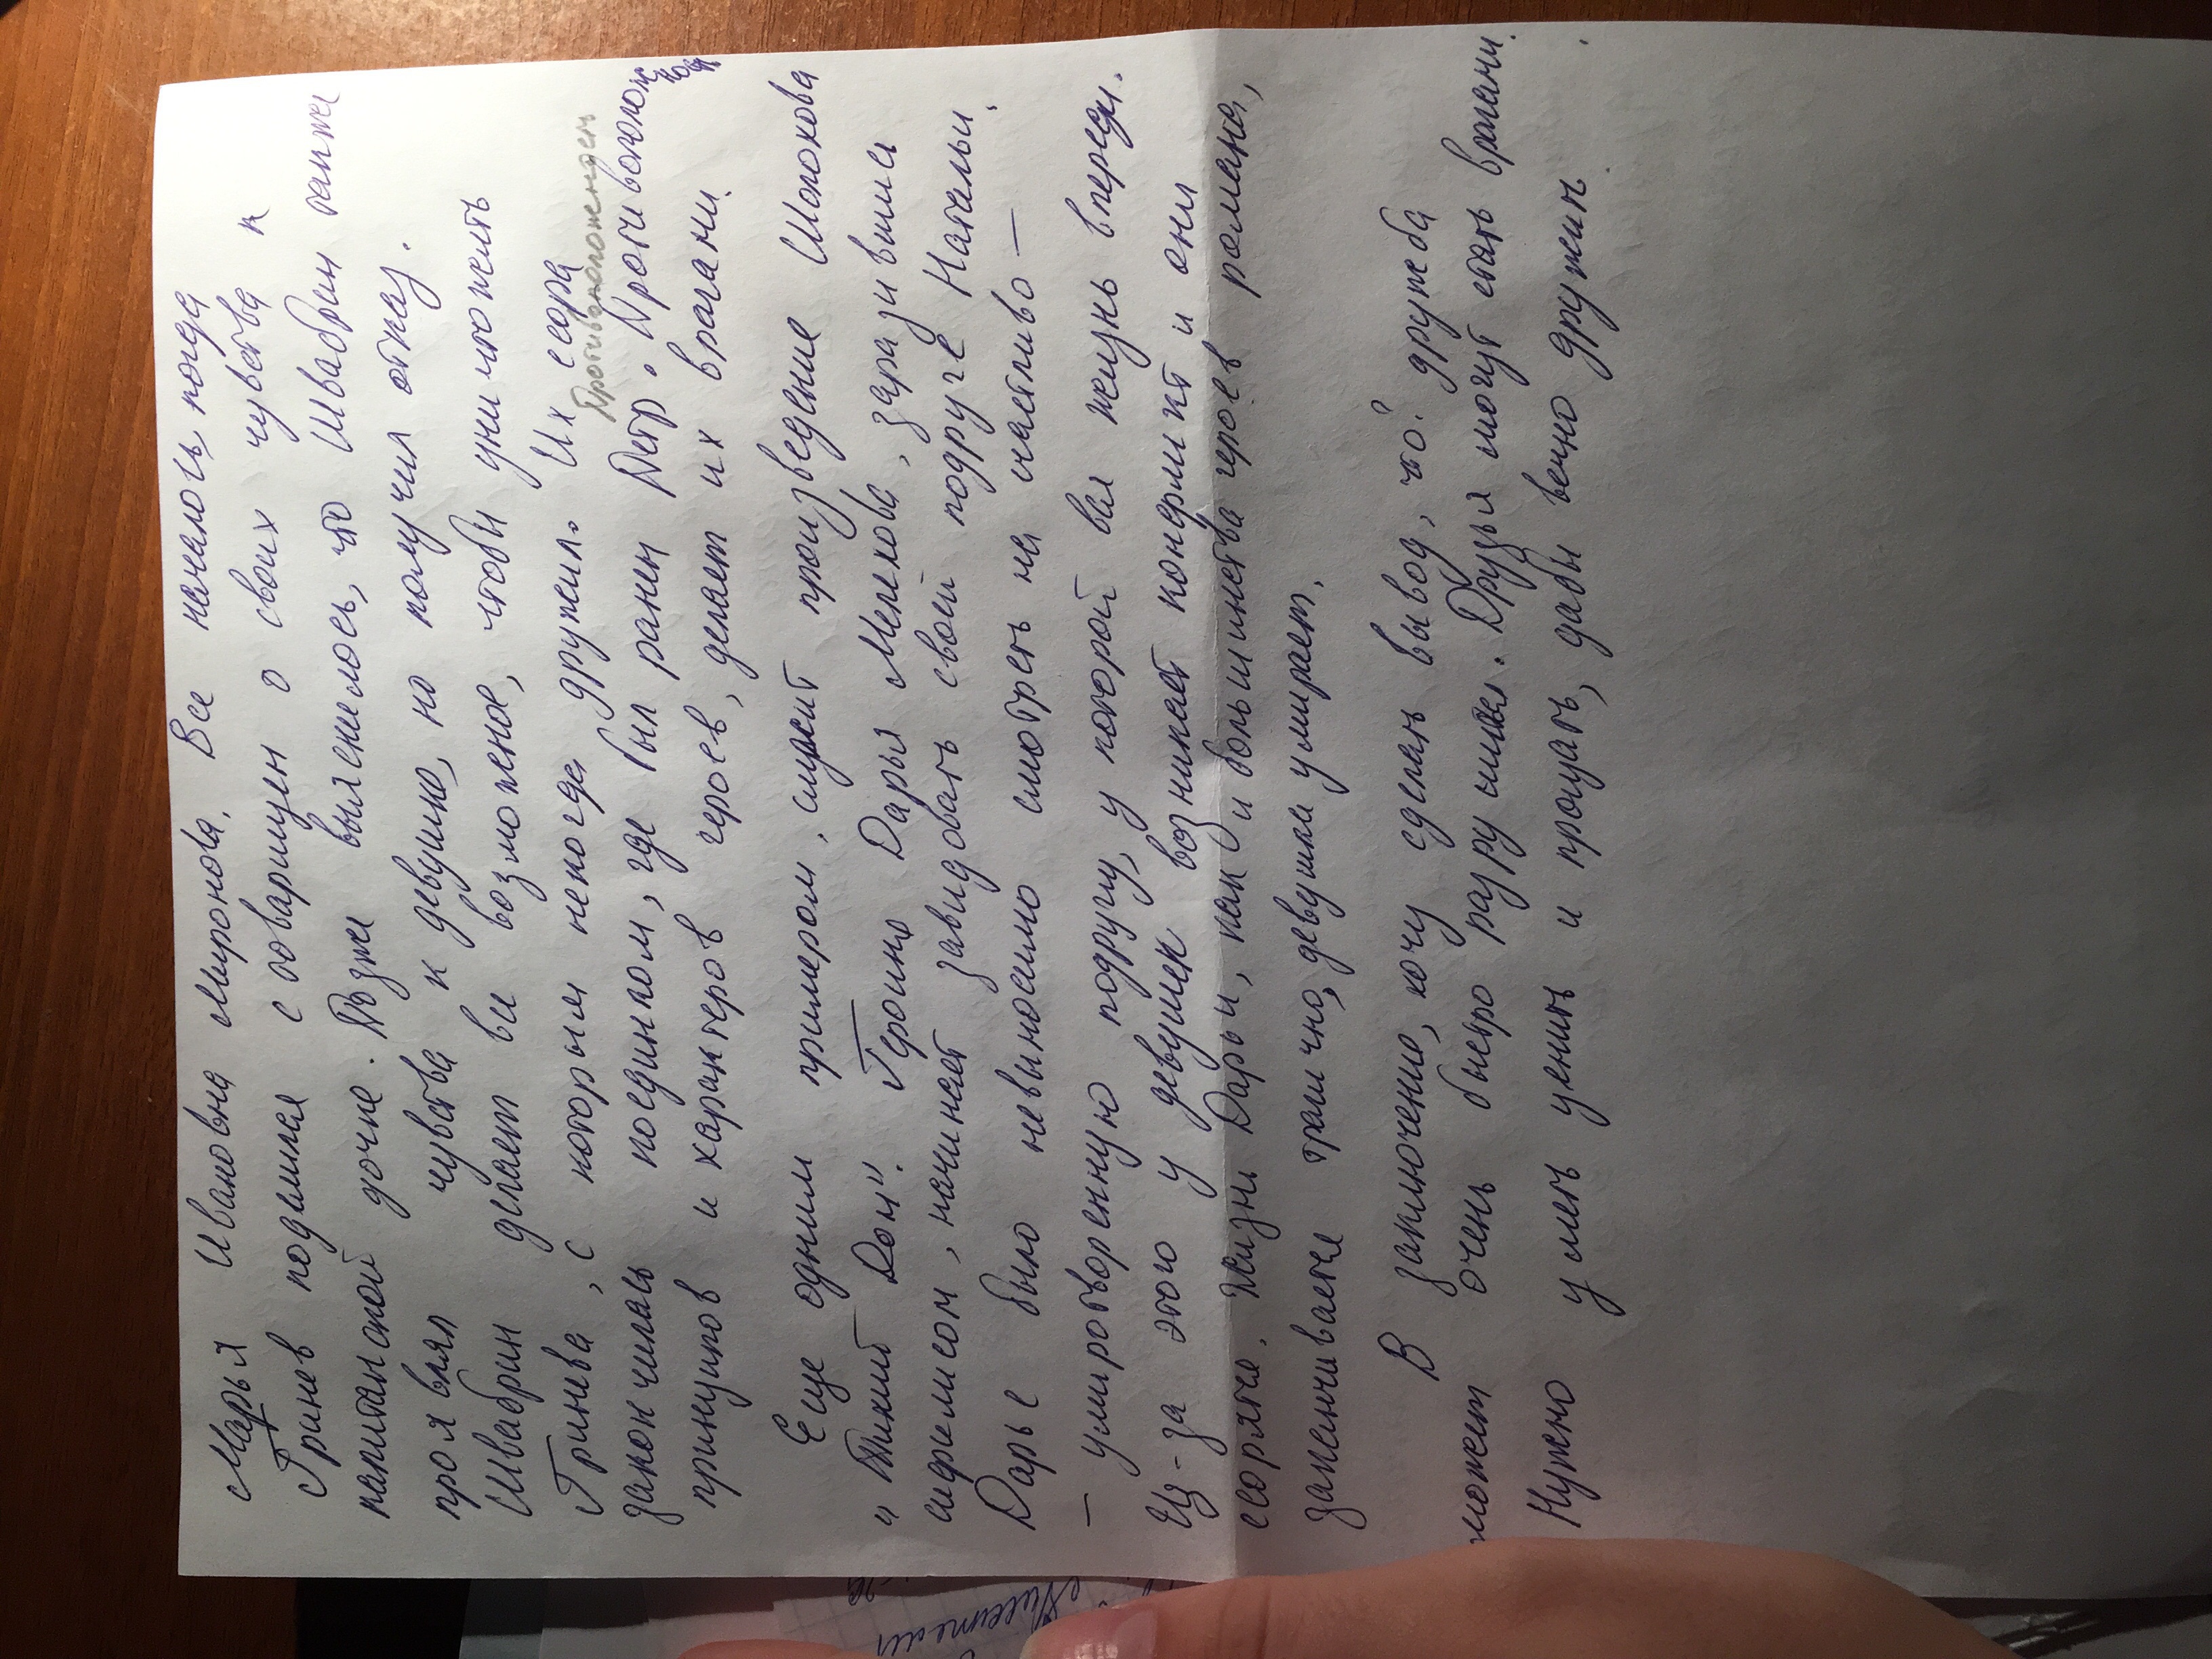 Марья Ивановна Миронова. Все началось, когда
Гринев поделился с товарищем о своих чувства к
капитанской дочке. Позже выяснилось, что Швабрин также
проявлял чувства к девушке, но получил отказ.
Швабрин делает все возможное, чтобы уничтожить
Гринева, с которым некогда дружил. Их ссора
Противоположенность
закончилась поединком, где был ранен Петр. Противополож
принципов и характеров героев, делает их врагами.
Еще одним примером, служит произведение Шолохова
"Тихий Дон". Героиня Дарья Мелехова, заразившись
сифилисом, начинает завидовать своей подруге Натальи.
Дарье было невыносимо смотреть на счастливо —
— умиротворенную подругу, у которой вся жизнь впереди.
Из-за этого у девушек возникает конфликт и они
ссорятся. Жизнь Дарьи, как и большинства героев романа,
заканчивается трагично, девушка умирает.
В заключение, хочу сделать вывод, что? дружба
может очень быстро разрушиться. Друзья могут стать врагами.
Нужно уметь ценить и прощать, дабы вечно дружить.